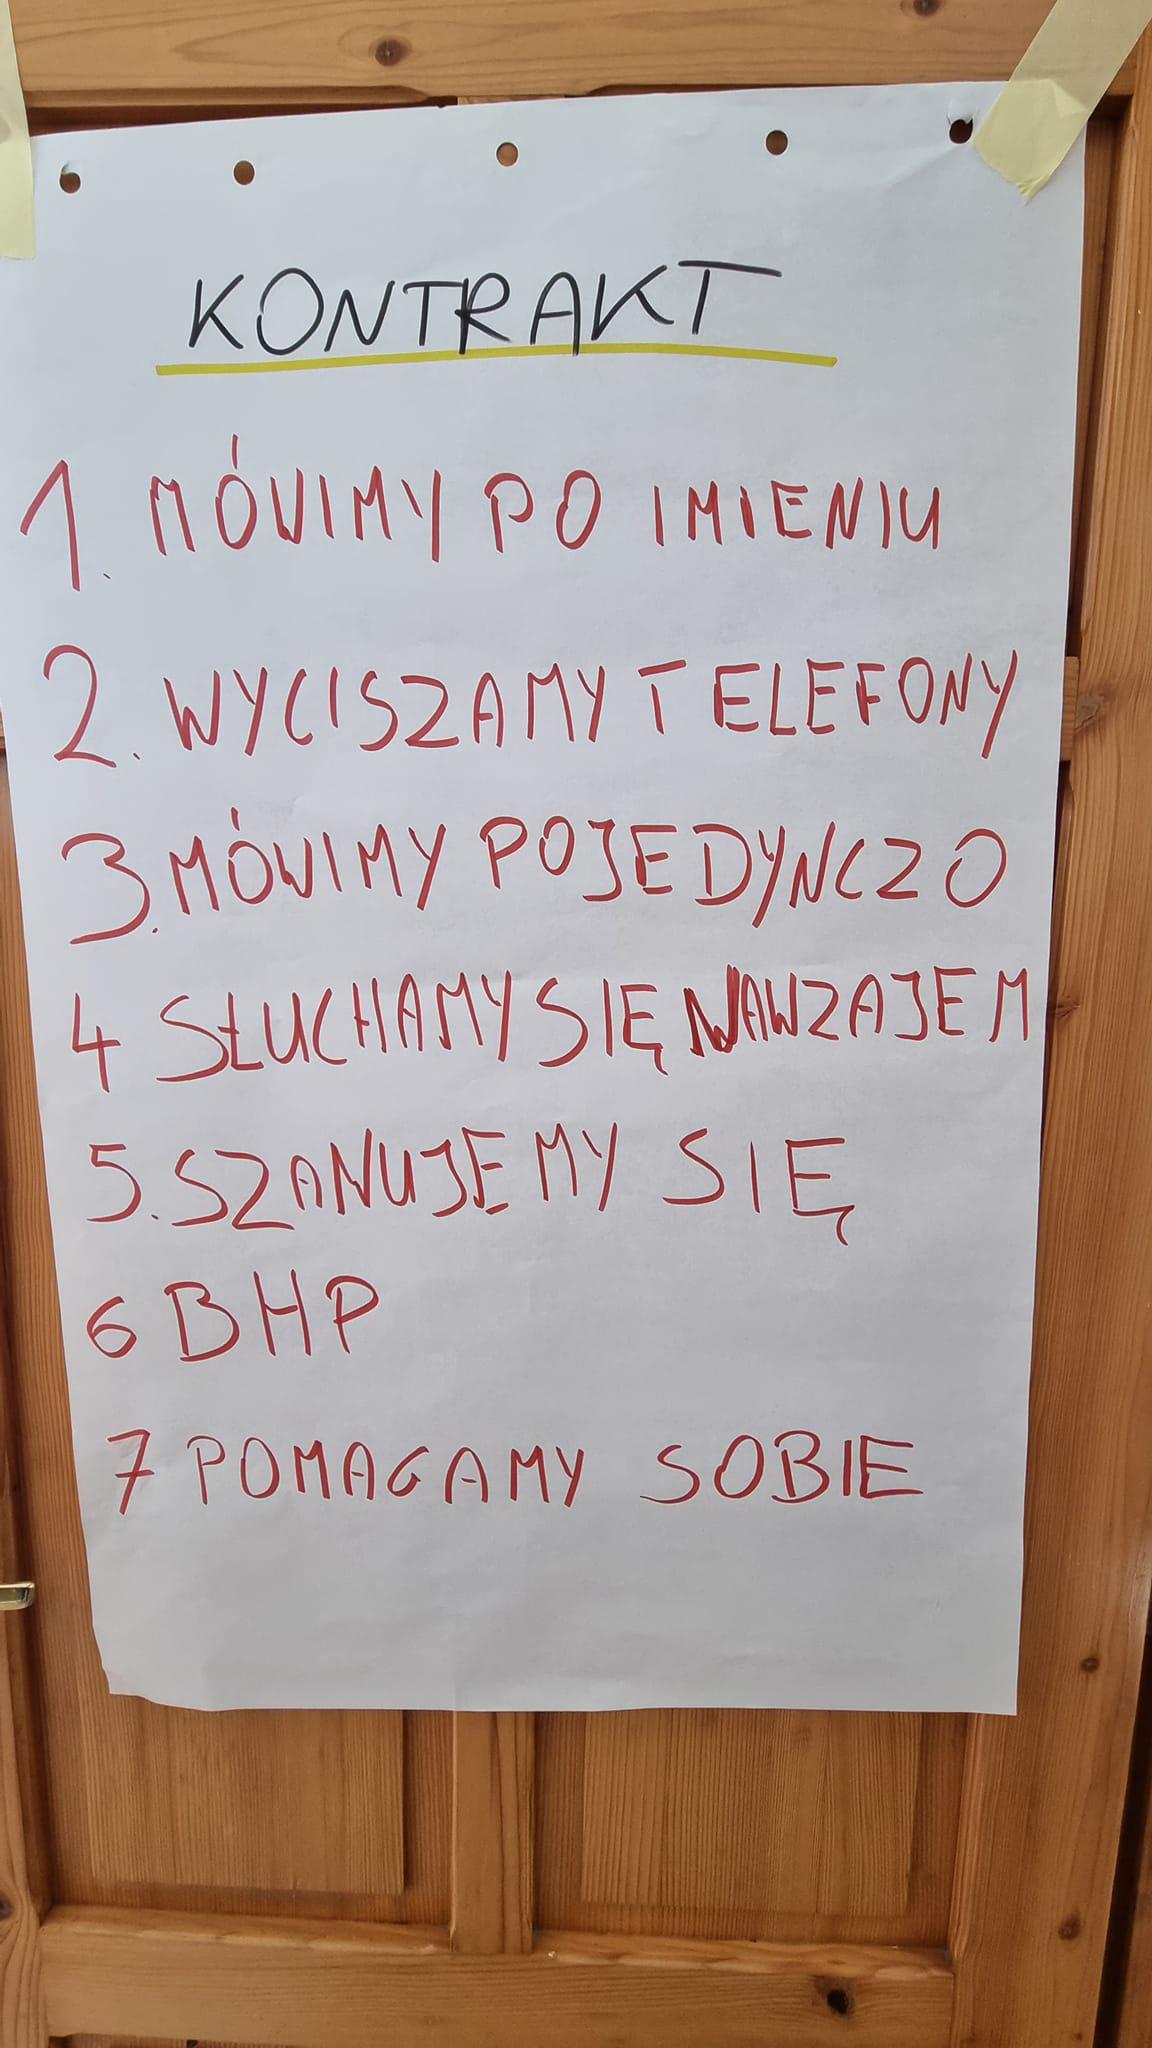 KONTRAKT
1. MÓWIMY PO IMIENIU
2. WYCISZAMY TELEFONY
3. MÓWIMY POJEDYNCZO
4 SŁUCHAMY SIĘ NAWZAJEM
5. SZANUJEMY SIĘ
6 BHP
7 POMAGAMY SOBIE